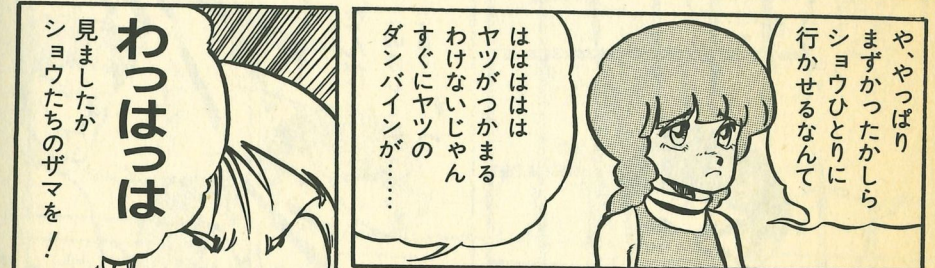 や、やっぱり
まずかったかしら
ショウひとりに
行かせるなんて
はははははは
ヤツがつかまる
わけないじゃん
すぐにヤツの
ダンバインが………
わっはっは
見ましたか
ショウたちのザマを！